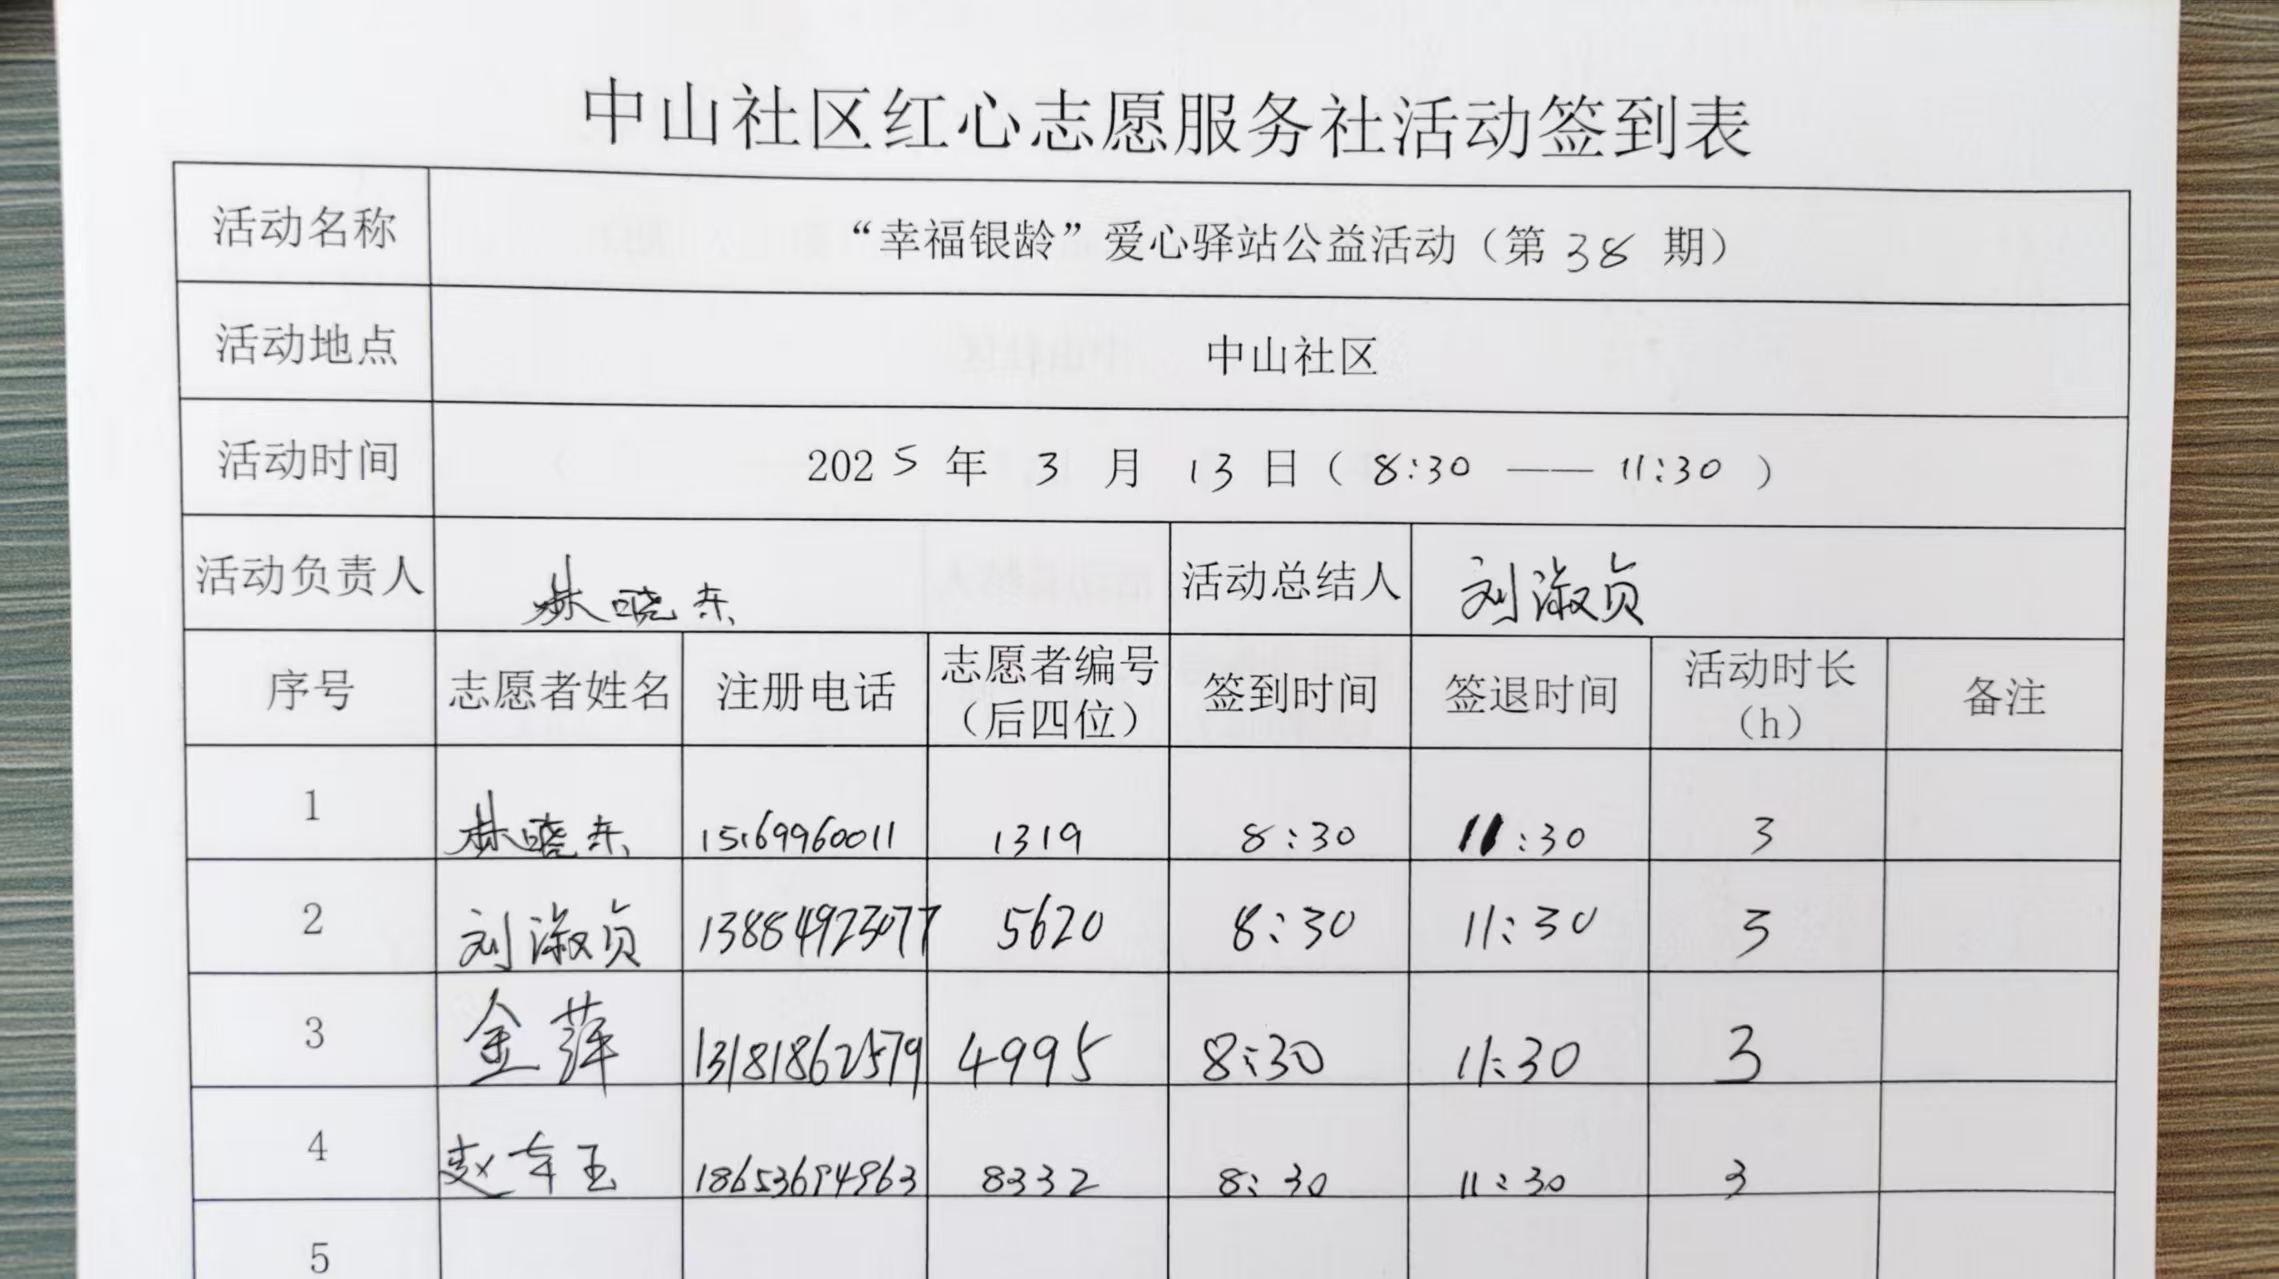 中山社区红心志愿服务社活动签到表
活动名称 “幸福银龄”爱心驿站公益活动（第 38 期）
活动地点 中山社区
活动时间 2025 年 3 月 13 日（ 8:30 —— 11:30 ）
活动负责人 林晓东 活动总结人 刘淑贞
序号 志愿者姓名 注册电话 志愿者编号（后四位） 签到时间 签退时间 活动时长（h） 备注
1 林晓东 15169960011 1319 8:30 11:30 3
2 刘淑贞 13884923077 5620 8:30 11:30 3
3 金萍 13181862579 4995 8:30 11:30 3
4 赵 玉 18653694963 8332 8:30 11:30 3
5